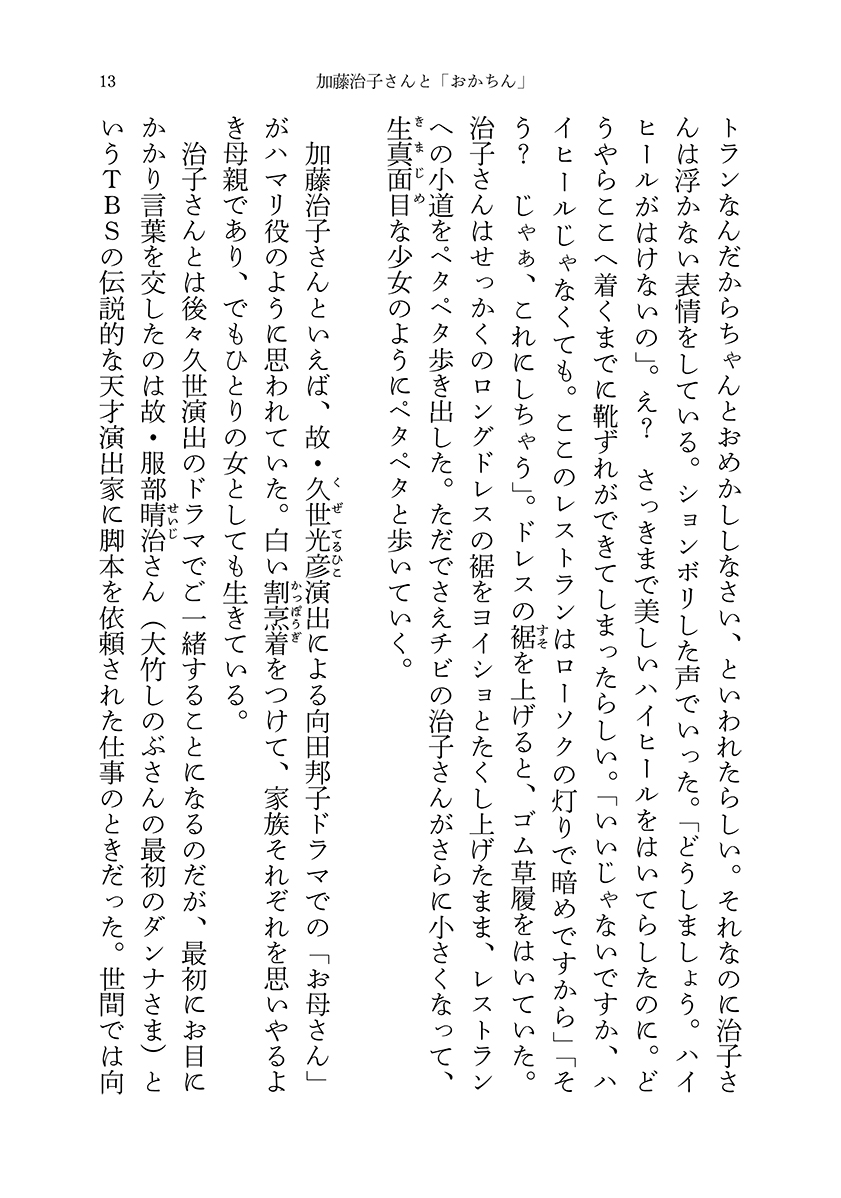 13
加藤治子さんと「おかちん」
トランなんだからちゃんとおめかししなさい、といわれたらしい。それなのに治子さ
んは浮かない表情をしている。ションボリした声でいった。「どうしましょう。ハイ
ヒールがはけないの」。え？　さっきまで美しいハイヒールをはいてらしたのに。ど
うやらここへ着くまでに靴ずれができてしまったらしい。「いいじゃないですか、ハ
イヒールじゃなくても。ここのレストランはローソクの灯りで暗めですから」「そ
う？　じゃぁ、これにしちゃう」。ドレスの裾を上げると、ゴム草履をはいていた。
すそ
治子さんはせっかくのロングドレスの裾をヨイショとたくし上げたまま、レストラン
への小道をペタペタ歩き出した。ただでさえチビの治子さんがさらに小さくなって、
生真面目な少女のようにペタペタと歩いていく。
きまじめ
加藤治子さんといえば、故・久世光彦演出による向田邦子ドラマでの「お母さん」
くぜてるひこ
がハマリ役のように思われていた。白い割烹着をつけて、家族それぞれを思いやるよ
かっぽうぎ
き母親であり、でもひとりの女としても生きている。
治子さんとは後々久世演出のドラマでご一緒することになるのだが、最初にお目に
かかり言葉を交したのは故・服部晴治さん（大竹しのぶさんの最初のダンナさま）と
せいじ
いうＴＢＳの伝説的な天才演出家に脚本を依頼された仕事のときだった。世間では向